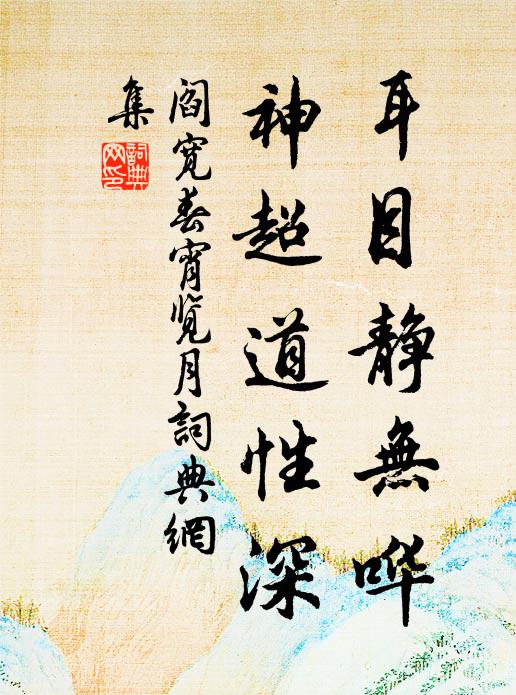 耳目静無哗
神超道性深
閻寬春宵覽月詞典網
集
詞典網印